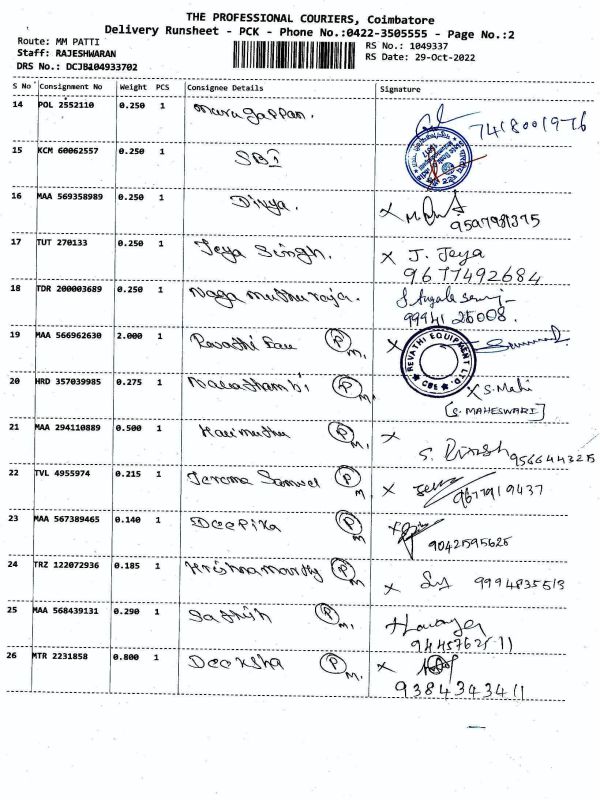 THE PROFESSIONAL COURIERS, Coimbatore
Delivery Runsheet - PCK - Phone No.:0422-3505555 - Page No.:2
Route: MM PATTI
RS No.: 1049337
Staff: RAJESHWARAN
RS Date: 29-Oct-2022
DRS No.: DCJB104933702
S No Consignment No Weight PCS Consignee Details Signature
14 POL 2552110 0.250 1 Murugappan.
7418001976
15 KCM 60062557 0.250 1 SBI
16 MAA 569358989 0.250 1 Divya.
X
17 TUT 270133 0.250 1 Jeya Singh. X J. Jeya
9677492684
18 TDR 200003689 0.250 1 Naga muthu raja.
19 MAA 566962630 2.000 1 Revathi Equ P M. X
REVATHI EQUIPMENT LTD. CBE
20 HRD 357039985 0.275 1 Nallathambi P M. X S. Mahi
[S. MAHESWARI]
21 MAA 294110889 0.500 1 Harimuthu P M. X
S. Dinesh 9566443215
22 TVL 4955974 0.215 1 Jerome Samuel P M X
9677919437
23 MAA 567389465 0.140 1 Deepika P M X
9042595625
24 TRZ 122072936 0.185 1 Krishnamoorthy P M X
9994835513
25 MAA 568439131 0.290 1 Sathish P M.
9445762511
26 MTR 2231858 0.800 1 Deeksha P M. X
9384343411